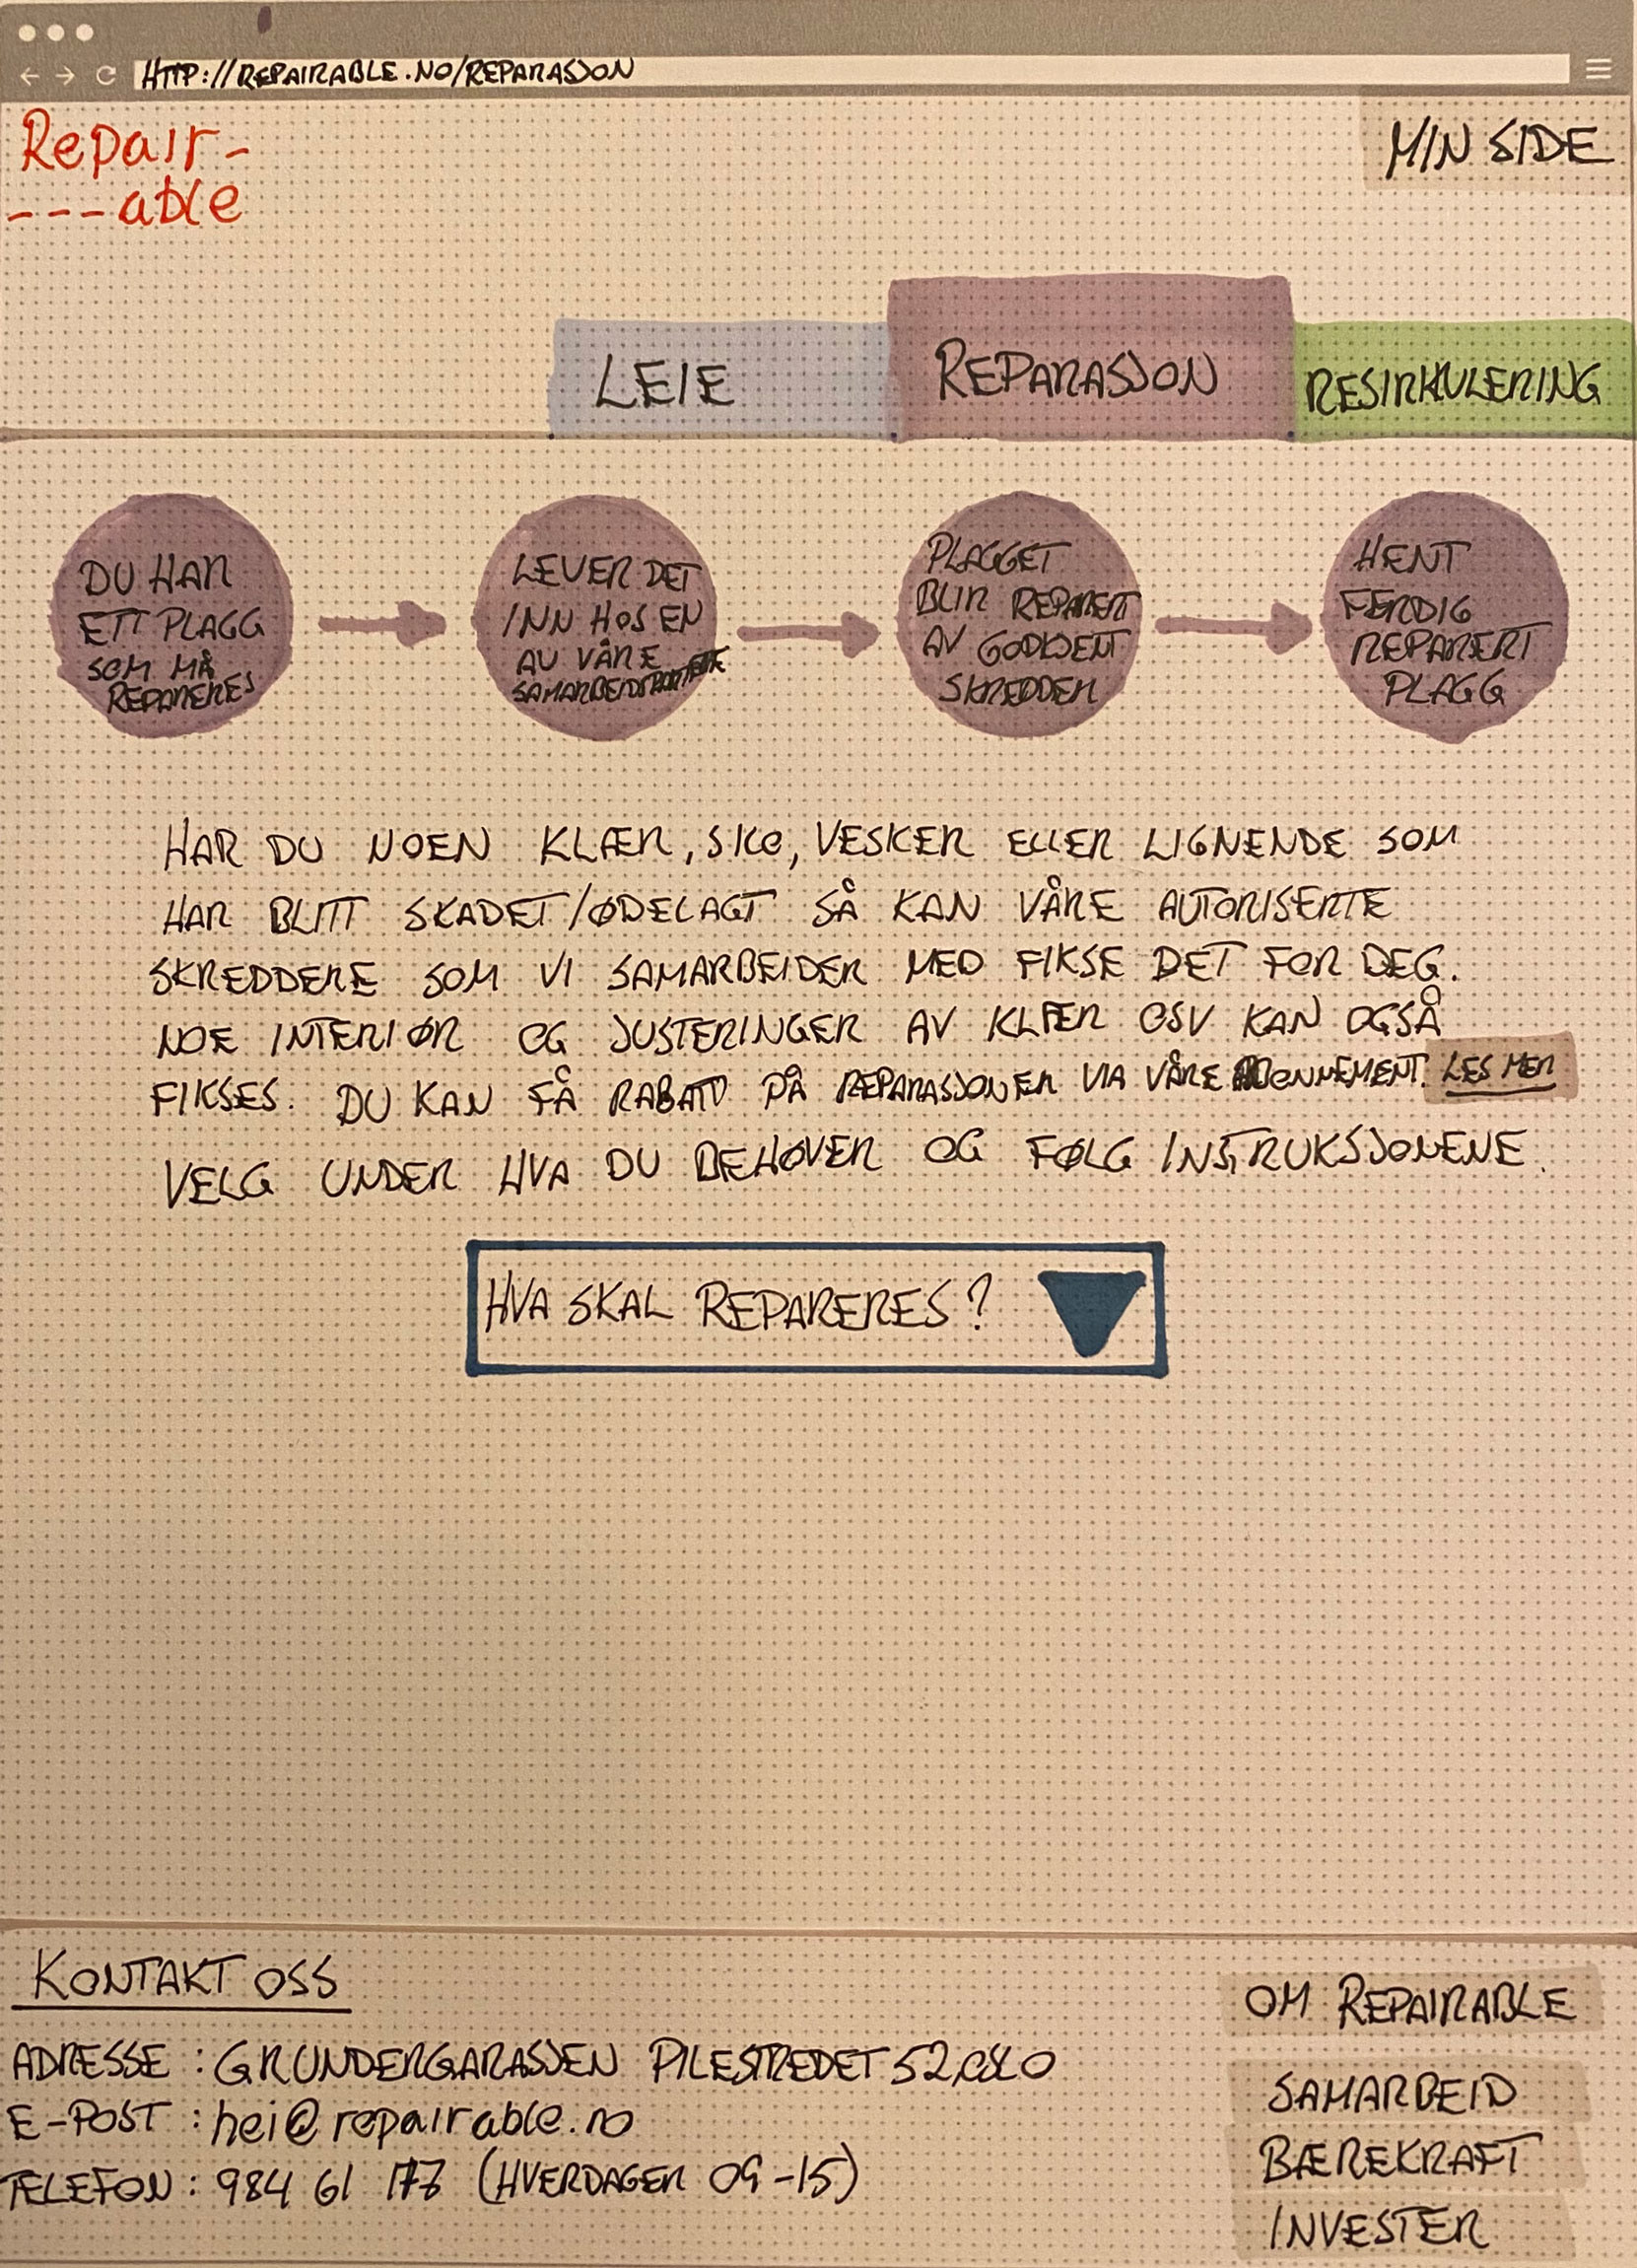 HTTP://REPAIRABLE.NO/REPARASJON
Repair-
---able
MIN SIDE
LEIE
REPARASJON
RESIRKULERING
DU HAR
ETT PLAGG
SOM MÅ
REPARERES
LEVER DET
INN HOS EN
AV VÅRE
PLAGGET
BLIR REPARERT
AV GODKJENT
SKREDDER
HENT
FERDIG
REPARERT
PLAGG
HAR DU NOEN KLÆR, SKO, VESKER ELLER LIGNENDE SOM
HAR BLITT SKADET/ØDELAGT SÅ KAN VÅRE AUTORISERTE
SKREDDERE SOM VI SAMARBEIDER MED FIKSE DET FOR DEG.
NOE INTERIØR OG JUSTERINGER AV KLÆR OSV KAN OGSÅ
FIKSES. DU KAN FÅ RABATT PÅ REPARASJONER VIA VÅRE ABONNEMENT. LES MER
VELG UNDER HVA DU BEHØVER OG FØLG INSTRUKSJONENE.
HVA SKAL REPARERES?
KONTAKT OSS
ADRESSE: GRUNDERGARASJEN PILESTREDET 52, OSLO
E-POST: hei@repairable.no
TELEFON: 984 61 177 (HVERDAGER 09-15)
OM REPAIRABLE
SAMARBEID
BÆREKRAFT
INVESTER